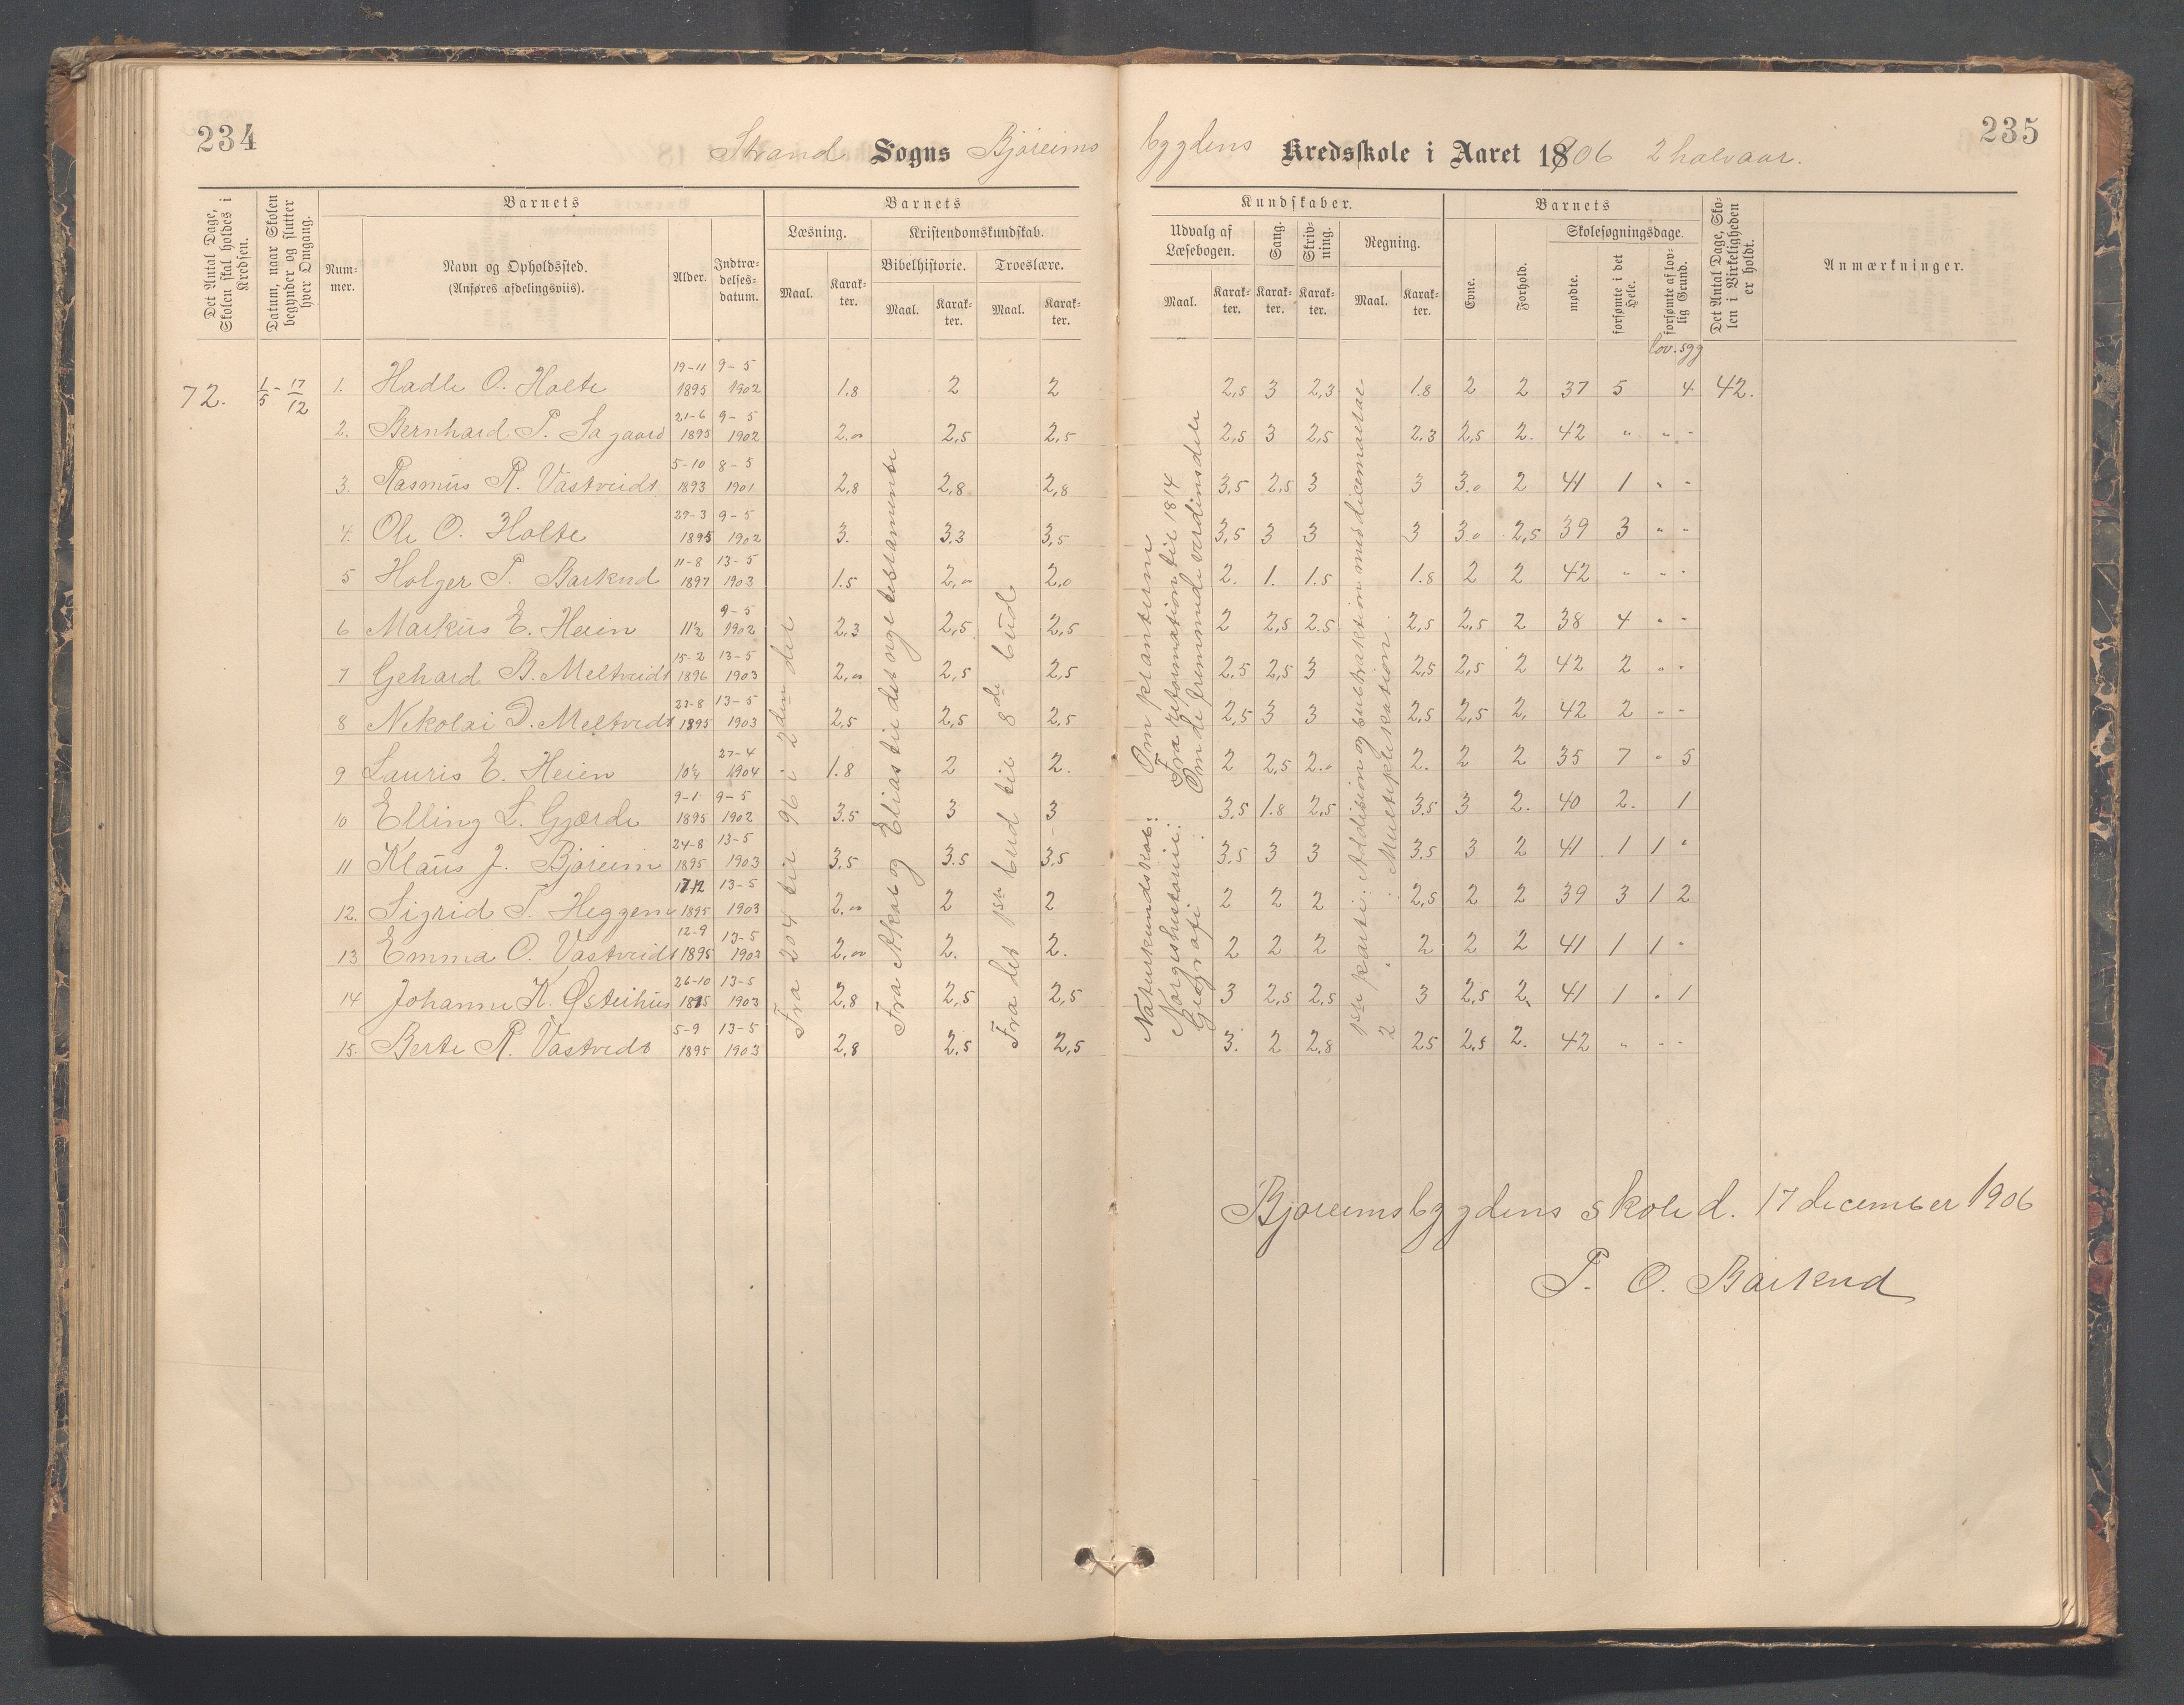 234
Strand Sogns Bjøreims
bygdens Kredsskole i Aaret 1806 2 halvaar.
235
Det Antal Dage, Skolen skal holdes i Kredsen.
Datum, naar Skolen begynder og slutter hver Omgang.
Barnets
Nummer.
Navn og Opholdssted.
(Anføres afdelingsviis).
Alder.
Indtrædelsesdatum.
Barnets
Læsning.
Kristendomskundskab.
Bibelhistorie.
Troeslære.
Maal.
Karakter.
Maal.
Karakter.
Maal.
Karakter.
Kundskaber.
Udvalg af Læsebogen.
Sang.
Skrivning.
Regning.
Maal.
Karakter.
Karakter.
Karakter.
Maal.
Karakter.
Barnets
Evne.
Forhold.
Skolesøgningsdage.
mødte.
forsømte i det Hele.
forsømte af lovlig Grund.
Det Antal Dage, Skolen i Virkeligheden er holdt.
Anmærkninger.
lov. sgg
72. 1/5 - 17/12 1. Hadle O. Holte 19-11 1895 9-5 1902 1.8 2 2 2,5 3 2,3 1.8 2 2 37 5 4 42.
2. Bernhard P. Sagaard 21-6 1895 9-5 1902 2.00 2,5 2,5 2,5 3 2,5 2.3 2,5 2. 42 " " -
3. Rasmus R. Vastveidt 5-10 1893 8-5 1901 2,8 2,8 2,8 3,5 2,5 3 3 3.0 2 41 1 " -
4. Ole O. Holte 27-3 1895 9-5 1902 3. 3.3 3,5 3,5 3 3 3 3.0 2,5 39 3 " -
5 Holger P. Barknd 11-8 1897 13-5 1903 1.5 2,00 2.0 2. 1. 1.5 1.8 2 2 42 " " -
6 Markus E. Heien 11½ 9-5 1902 2,3 2,5 2,5 2 2,5 2.5 2,5 2,5 2 38 4 " -
7 Gehard B. Meltveidt 15-2 1896 13-5 1903 2,00 2,5 2,5 2,5 2,5 3 2,5 2,5 2 42 2 " "
8 Nikolai D. Meltvedt 23-8 1895 13-5 1903 2,5 2,5 2,5 2,5 3 3 2,5 2,5 2, 42 2 " -
9 Lauris E. Heien 10½ 27-4 1904 1.8 2 2. 2 2,5 2.0 2. 2 2 35 7 " 5
10 Elling L. Gjærde 9-1 1895 9-5 1902 3.5 3 3 3,5 1.8 2,5 3.5 3 2. 40 2. 1
11 Klaus J. Bjøreim 24-8 1895 13-5 1903 3,5 3.5 3,5 3.5 3 3 3.5 3 2 41 1 1 "
12. Sigrid T. Heggem 1895 13-5 1903 2.00 2 2 2 2 2 2,5 2 2 39 3 1 2
13 Emma O. Vastveidt 12-9 1895 13-5 1903 2,00 2. 2. 2 2 2 2 2 2 41 1 1 "
14 Johanne K. Østeihus 26-10 1895 13-5 1903 2,8 2,5 2,5 3 2,5 2,5 3 2,5 2, 41 1 " 1
15. Berte R. Vastvedt 5-9 1895 13-5 1903 2,8 2.5 2,5 3. 2 2.8 25 2,5 2. 42 " " -
Fra 204 til 96 i 2den del
Fra Akab og Elias til det nye testamente
Fra det 1ste bud til 8de bud
Naturkundskab: Om planterne
Norgeshistorie: Fra reformation til 1814
Geografi: Om de fremmede verdensdele
1ste parti: Addition og subtraktion med dicemaltal
2 " : Multiplikation.
Bjøreimsbygdens skole d. 17 december 1906
P. O. Barknd